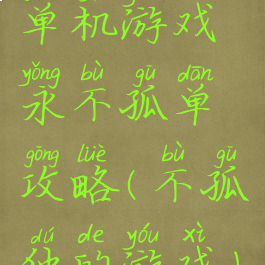 单机游戏
yǒng bù gū dān
永不孤单
gōng lüè bù gū
攻略(不孤
dú de yóu xì
独的游戏)